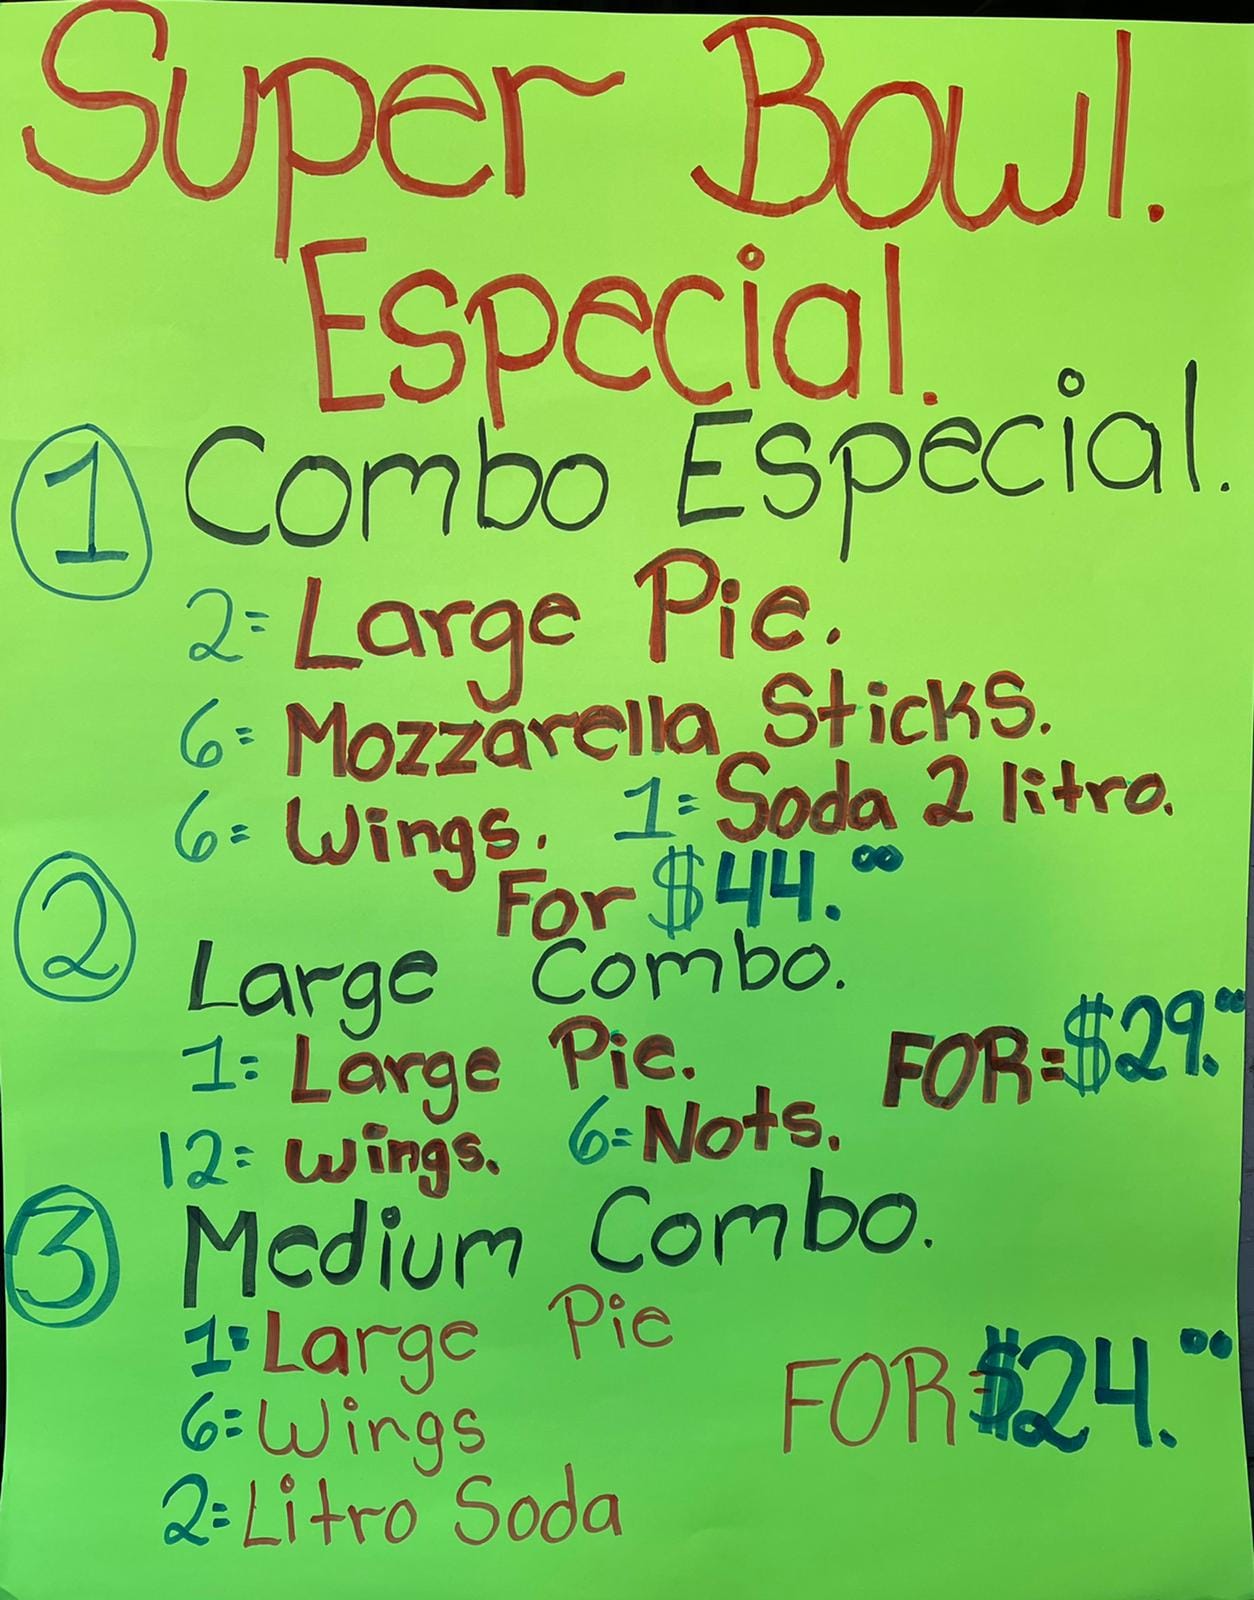 Super Bowl.
Especial.
1 Combo Especial.
2= Large Pie.
6= Mozzarella Sticks.
6= Wings. 1= Soda 2 litro.
For $44.00
2 Large Combo.
1= Large Pie. FOR=$29.00
12= wings. 6= Nots.
3 Medium Combo.
1= Large Pie
6= Wings FOR=$24.00
2= Litro Soda